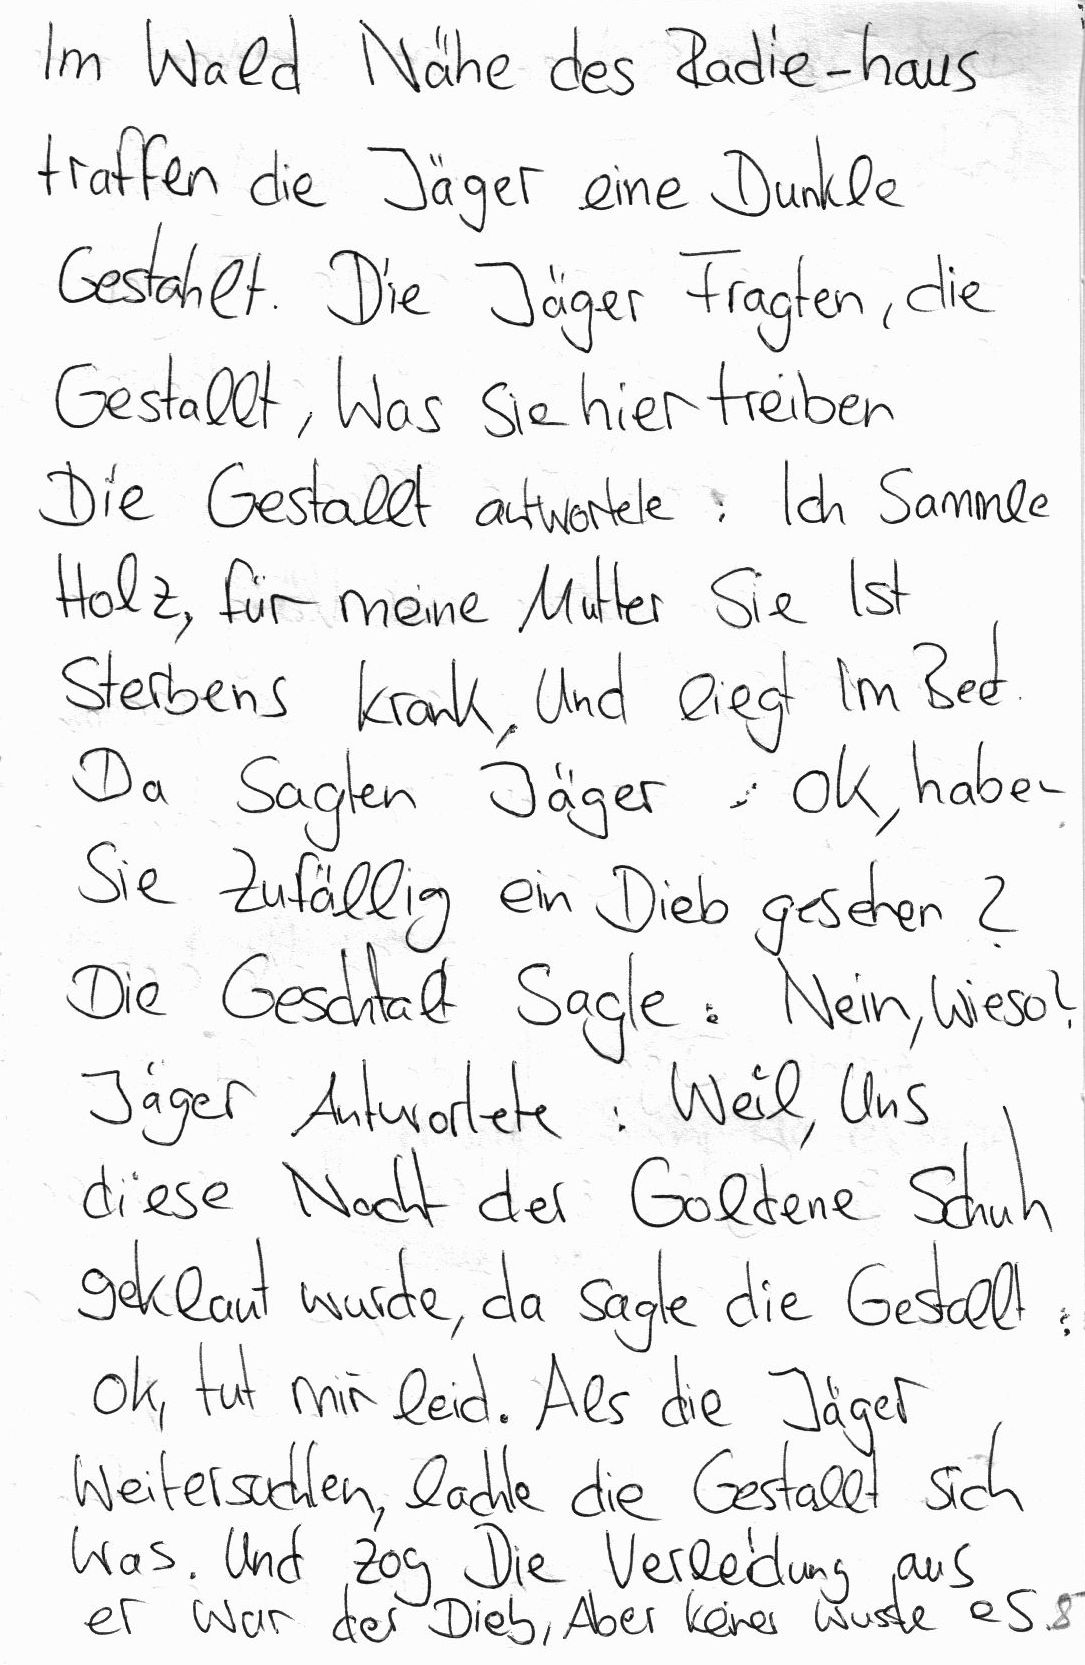 Im Wald Nähe des Radie-haus
traffen die Jäger eine Dunkle
Gestahlt. Die Jäger Fragten, die
Gestallt, Was Sie hier treiben
Die Gestallt antwortete : Ich Sammle
Holz, für meine Mutter Sie Ist
Sterbens krank, Und liegt Im Bed.
Da Sagten Jäger : Ok, haben
Sie Zufällig ein Dieb gesehen ?
Die Geschtalt Sagte : Nein, Wieso?
Jäger Antwortete : Weil, Uns
diese Nacht der Goldene Schuh
geklaut wurde, da sagte die Gestallt :
Ok, tut mir leid. Als die Jäger
Weitersuchten, lachte die Gestallt sich
Was. Und zog Die Verleidung aus
er war der Dieb, Aber keiner wuste es 8